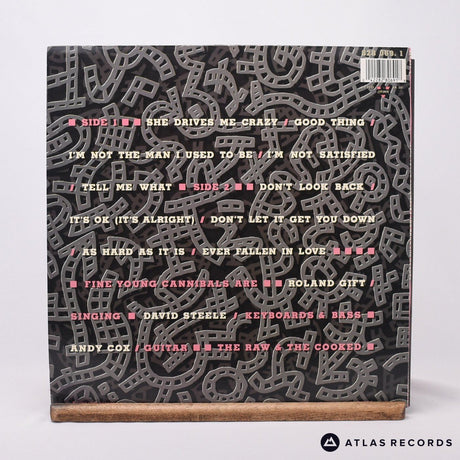 828 069. 1
SIDE 1 SHE DRIVES ME CRAZY / GOOD THING /
I'M NOT THE MAN I USED TO BE / I'M NOT SATISFIED
/ TELL ME WHAT SIDE 2 DON'T LOOK BACK /
IT'S OK (IT'S ALRIGHT) / DON'T LET IT GET YOU DOWN
/ AS HARD AS IT IS / EVER FALLEN IN LOVE
FINE YOUNG CANNIBALS ARE ROLAND GIFT /
SINGING DAVID STEELE / KEYBOARDS & BASS
ANDY COX / GUITAR THE RAW & THE COOKED
ATLAS RECORDS